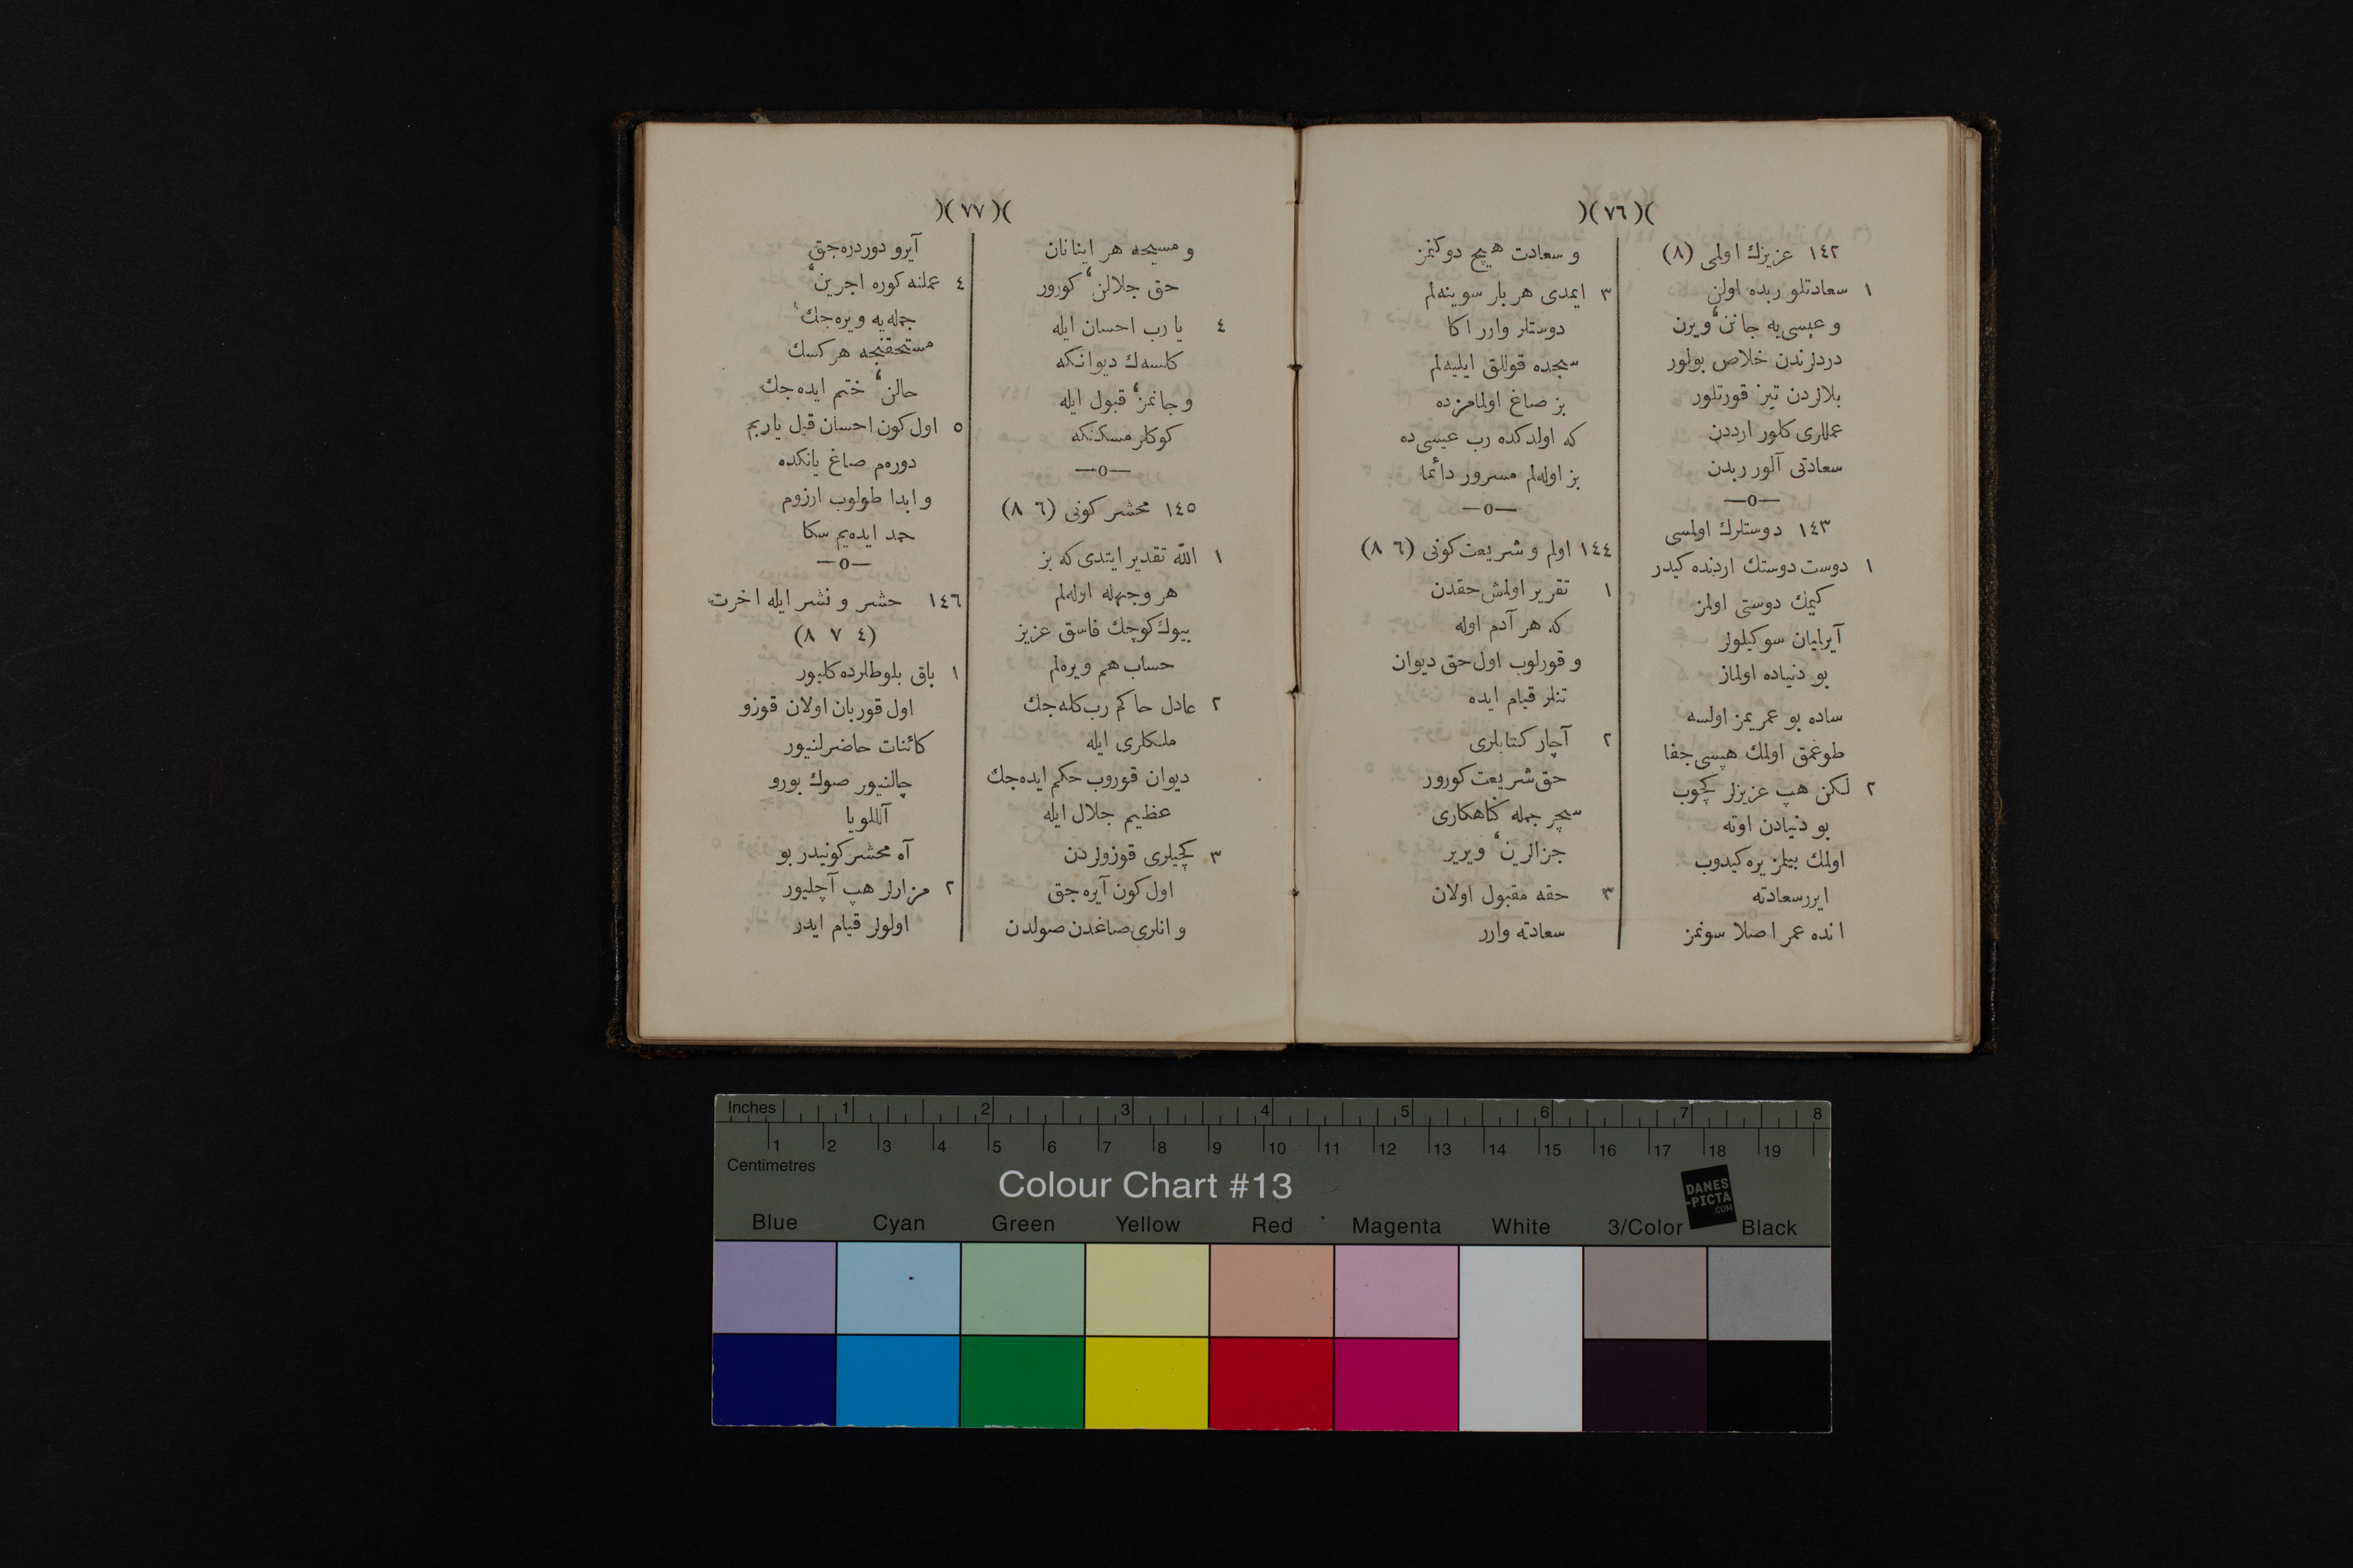 )( ٧٦ )(
١٤٢ عزیزك اولمی (٨)
١ سعادتلو ربده اولن
و عیسی‌یه جانن ویرن
دردلرندن خلاص بولور
بلالردن تیز قورتلور
عمللری كلور ارددن
سعادتی آلور ربدن
—o—
١٤٣ دوستلرك اولمسی
١ دوست دوستك اردنده كیدر
كیمك دوستی اولمز
آیرلمیان سوكیلولر
بو دنیاده اولماز
ساده بو عمریمز اولسه
طوغمق اولمك هپسی جفا
٢ لكن هپ عزیزلر كچوب
بو دنیادن اوته
اولمك بیلمز یره كیدوب
ایرر سعادته
انده عمر اصلا سونمز
و سعادت هیچ دوكنمز
٣ ایمدی هر بار سوینه‌لم
دوستلر وارر اكا
سجده قوللق ایلیه‌لم
بز صاغ اولمامزده
كه اولدكده رب عیسی‌ده
بز اوله‌لم مسرور دائما
—o—
١٤٤ اولم و شریعت كونی (٦ ٨)
١ تقریر اولمش حقدن
كه هر آدم اوله
و قورلوب اول حق دیوان
تنلر قیام ایده
٢ آچار كتابلری
حق شریعت كورور
سچر جمله كناهكاری
جزالرین ویریر
٣ حقه مقبول اولان
سعادته وارر
)( ٧٧ )(
و مسیحه هر اینانان
حق جلالن كورور
٤ یا رب احسان ایله
كلسه‌ك دیوانكه
و جانمز قبول ایله
كوكلر مسكنكه
—o—
١٤٥ محشر كونی (٦ ٨)
١ اللّه تقدیر ایتدی كه بز
هر وجهله اوله‌لم
بیوك كوچك فاسق عزیز
حساب هم ویره‌لم
٢ عادل حاكم رب كله‌جك
ملكلری ایله
دیوان قوروب حكم ایده‌جك
عظیم جلال ایله
٣ كچیلری قوزولردن
اول كون آیره‌جق
و انلری صاغدن صولدن
آیرو دوردره‌جق
٤ عملنه كوره اجرین
جمله‌یه ویره‌جك
مستحقنجه هر كسك
حالن ختم ایده‌جك
٥ اول كون احسان قیل یاربم
دوره‌م صاغ یانكده
و ابدا طولوب ارزوم
حمد ایده‌یم سكا
—o—
١٤٦ حشر و نشر ایله اخرت
(٤ ٧ ٨)
١ باق بلوطلرده كلیور
اول قوربان اولان قوزو
كائنات حاضرلنیور
چالنیور صوك بورو
آللویا
آه محشر كونیدر بو
٢ مزارلر هپ آچلیور
اولولر قیام ایدر
Inches 1 2 3 4 5 6 7 8
1 2 3 4 5 6 7 8 9 10 11 12 13 14 15 16 17 18 19
Centimetres
Colour Chart #13
DANES
-PICTA
.COM
Blue Cyan Green Yellow Red Magenta White 3/Color Black